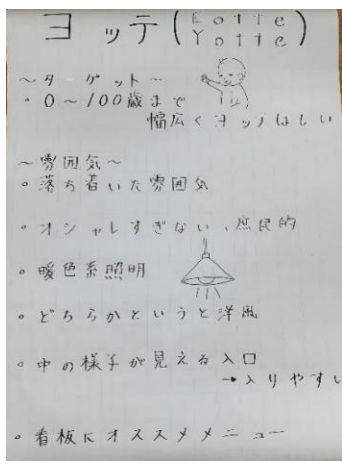 ヨッテ(Eotte
Yotte)
～ターゲット～
・0～100歳まで
幅広くヨッてほしい
～雰囲気～
・落ち着いた雰囲気
・オシャレすぎない、庶民的
・暖色系照明
・どちらかというと洋風
・中の様子が見える入口
→入りやすい
・看板にオススメメニュー